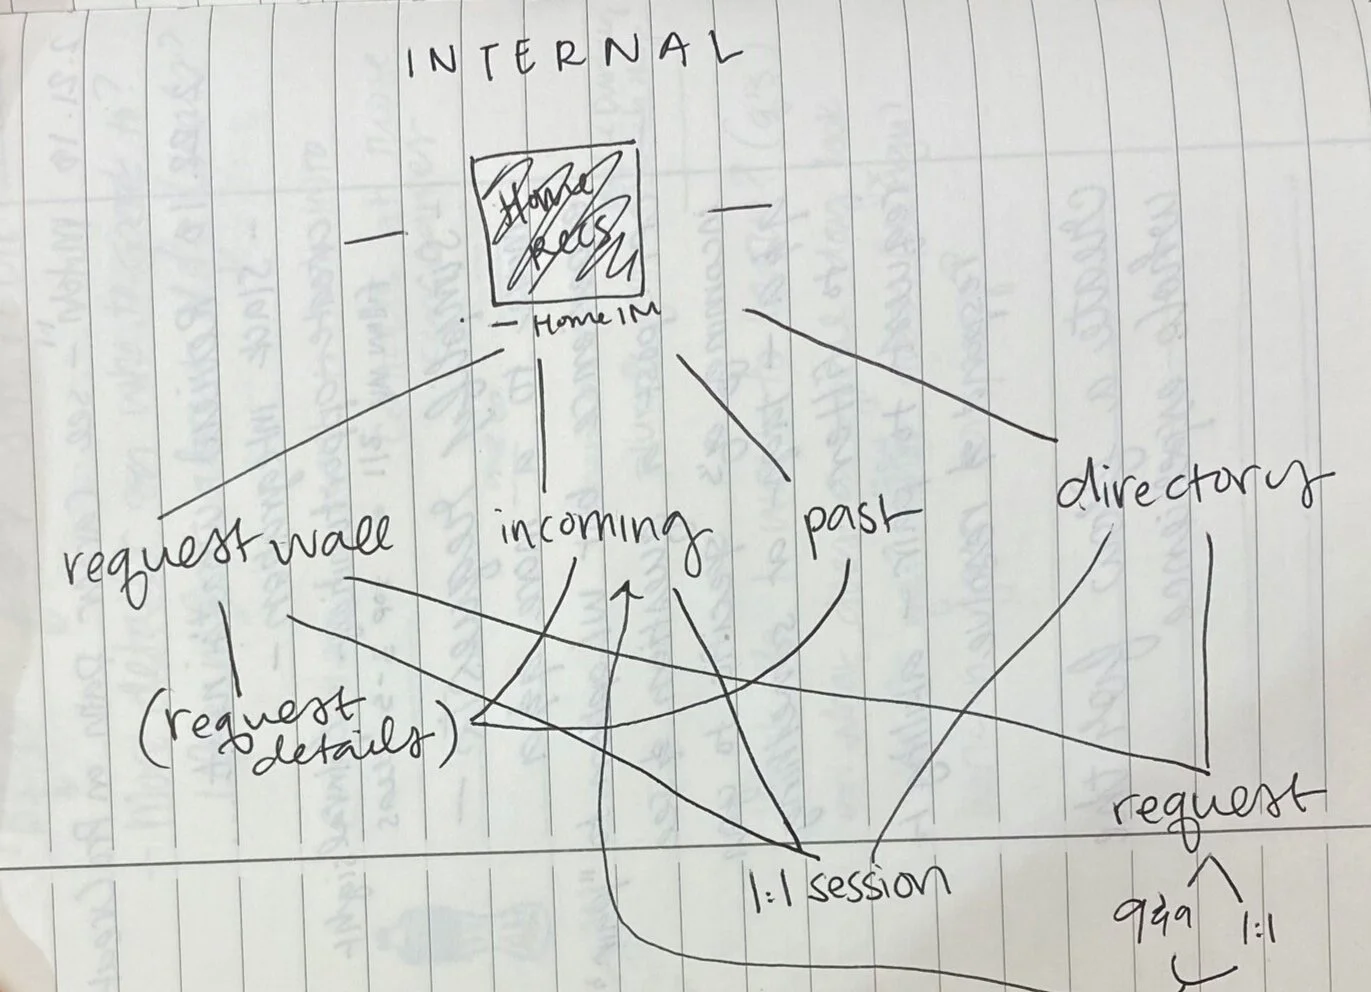 INTERNAL
Home
Recs
- Home IM
directory
request wall
incoming
past
(request
details)
request
1:1 session
q&a
1:1